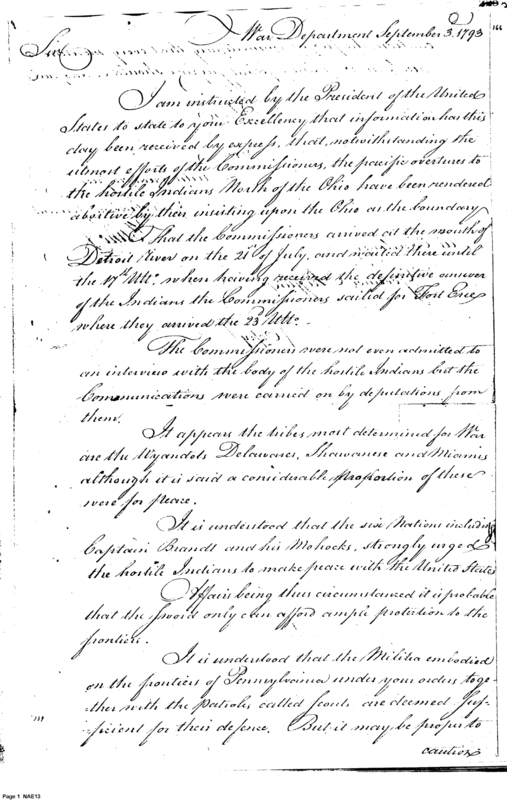 War Department September 3. 1793
Sir
I am instructed by the President of the United
States to state to your Excellency that information has this
day been received by express, that, notwithstanding the
utmost efforts of the Commissioners, the pacific overtures to
the hostile Indians North of the Ohio have been rendered
abortive by their insisting upon the Ohio as the boundary
That the Commissioners arrived at the mouth of
Detroit River on the 21st of July, and waited there until
the 17th Ulto. when having received the definitive answer
of the Indians the Commissioners sailed for Fort Erie
where they arrived the 23d Ulto.
The Commissioners were not even admitted to
an interview with the body of the hostile Indians but the
Communications were carried on by deputations from
them.
It appears the tribes most determined for War
are the Wyandots Delawares, Shawanese and Miamis
although it is said a considerable proportion of these
were for peace.
It is understood that the six Nations including
Captain Brandt and his Mohocks, strongly urged
the hostile Indians to make peace with the United States
Affairs being thus circumstanced it is probable
that the sword only can afford ample protection to the
frontiers.
It is understood that the Militia embodied
on the frontiers of Pennsylvania under your orders toge-
ther with the Patroles called Scouts are deemed suf-
ficient for their defence. But it may be proper to
caution
Page 1 NAE13